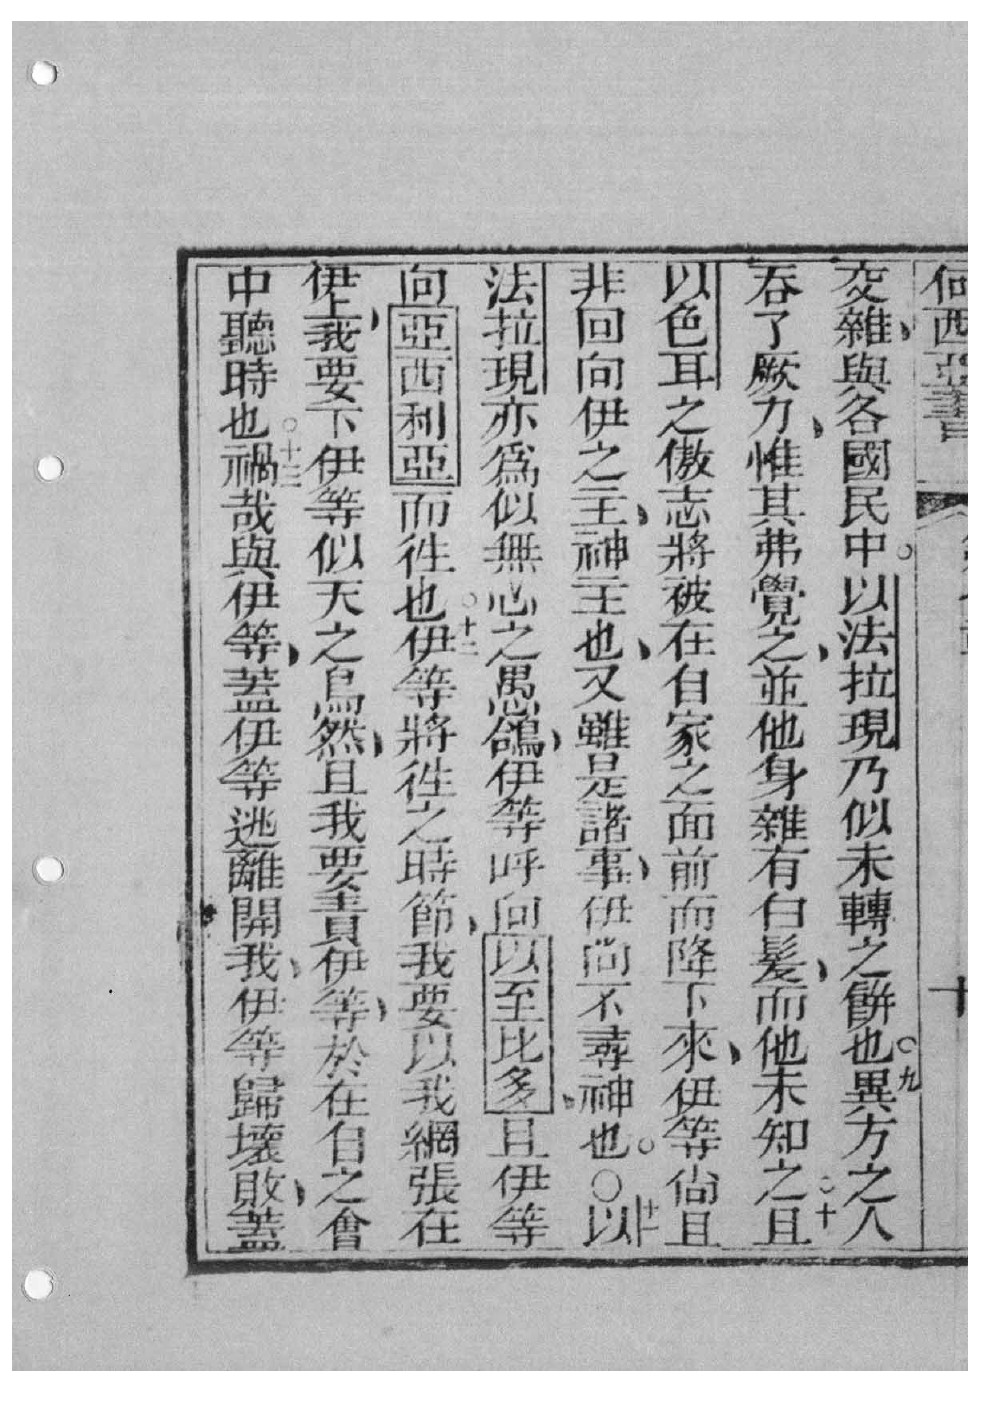 何西亞書
十
交雜與各國民中以法拉現乃似未轉之餅也九異方之人
吞了厥力惟其弗覺之並他身雜有白髮而他未知之十且
以色耳之傲志將被在自家之面前而降下來伊等尙且
非回向伊之主神主也又雖是諸事伊尙不尋神也○十一以
法拉現亦爲似無心之愚鴿伊等呼向以至比多且伊等
向亞西利亞而徃也十二伊等將徃之時節我要以我網張在
伊上我要下伊等似天之鳥然且我要責伊等於在自之會
中聽時也十三禍哉與伊等蓋伊等逃離開我伊等歸壞敗蓋